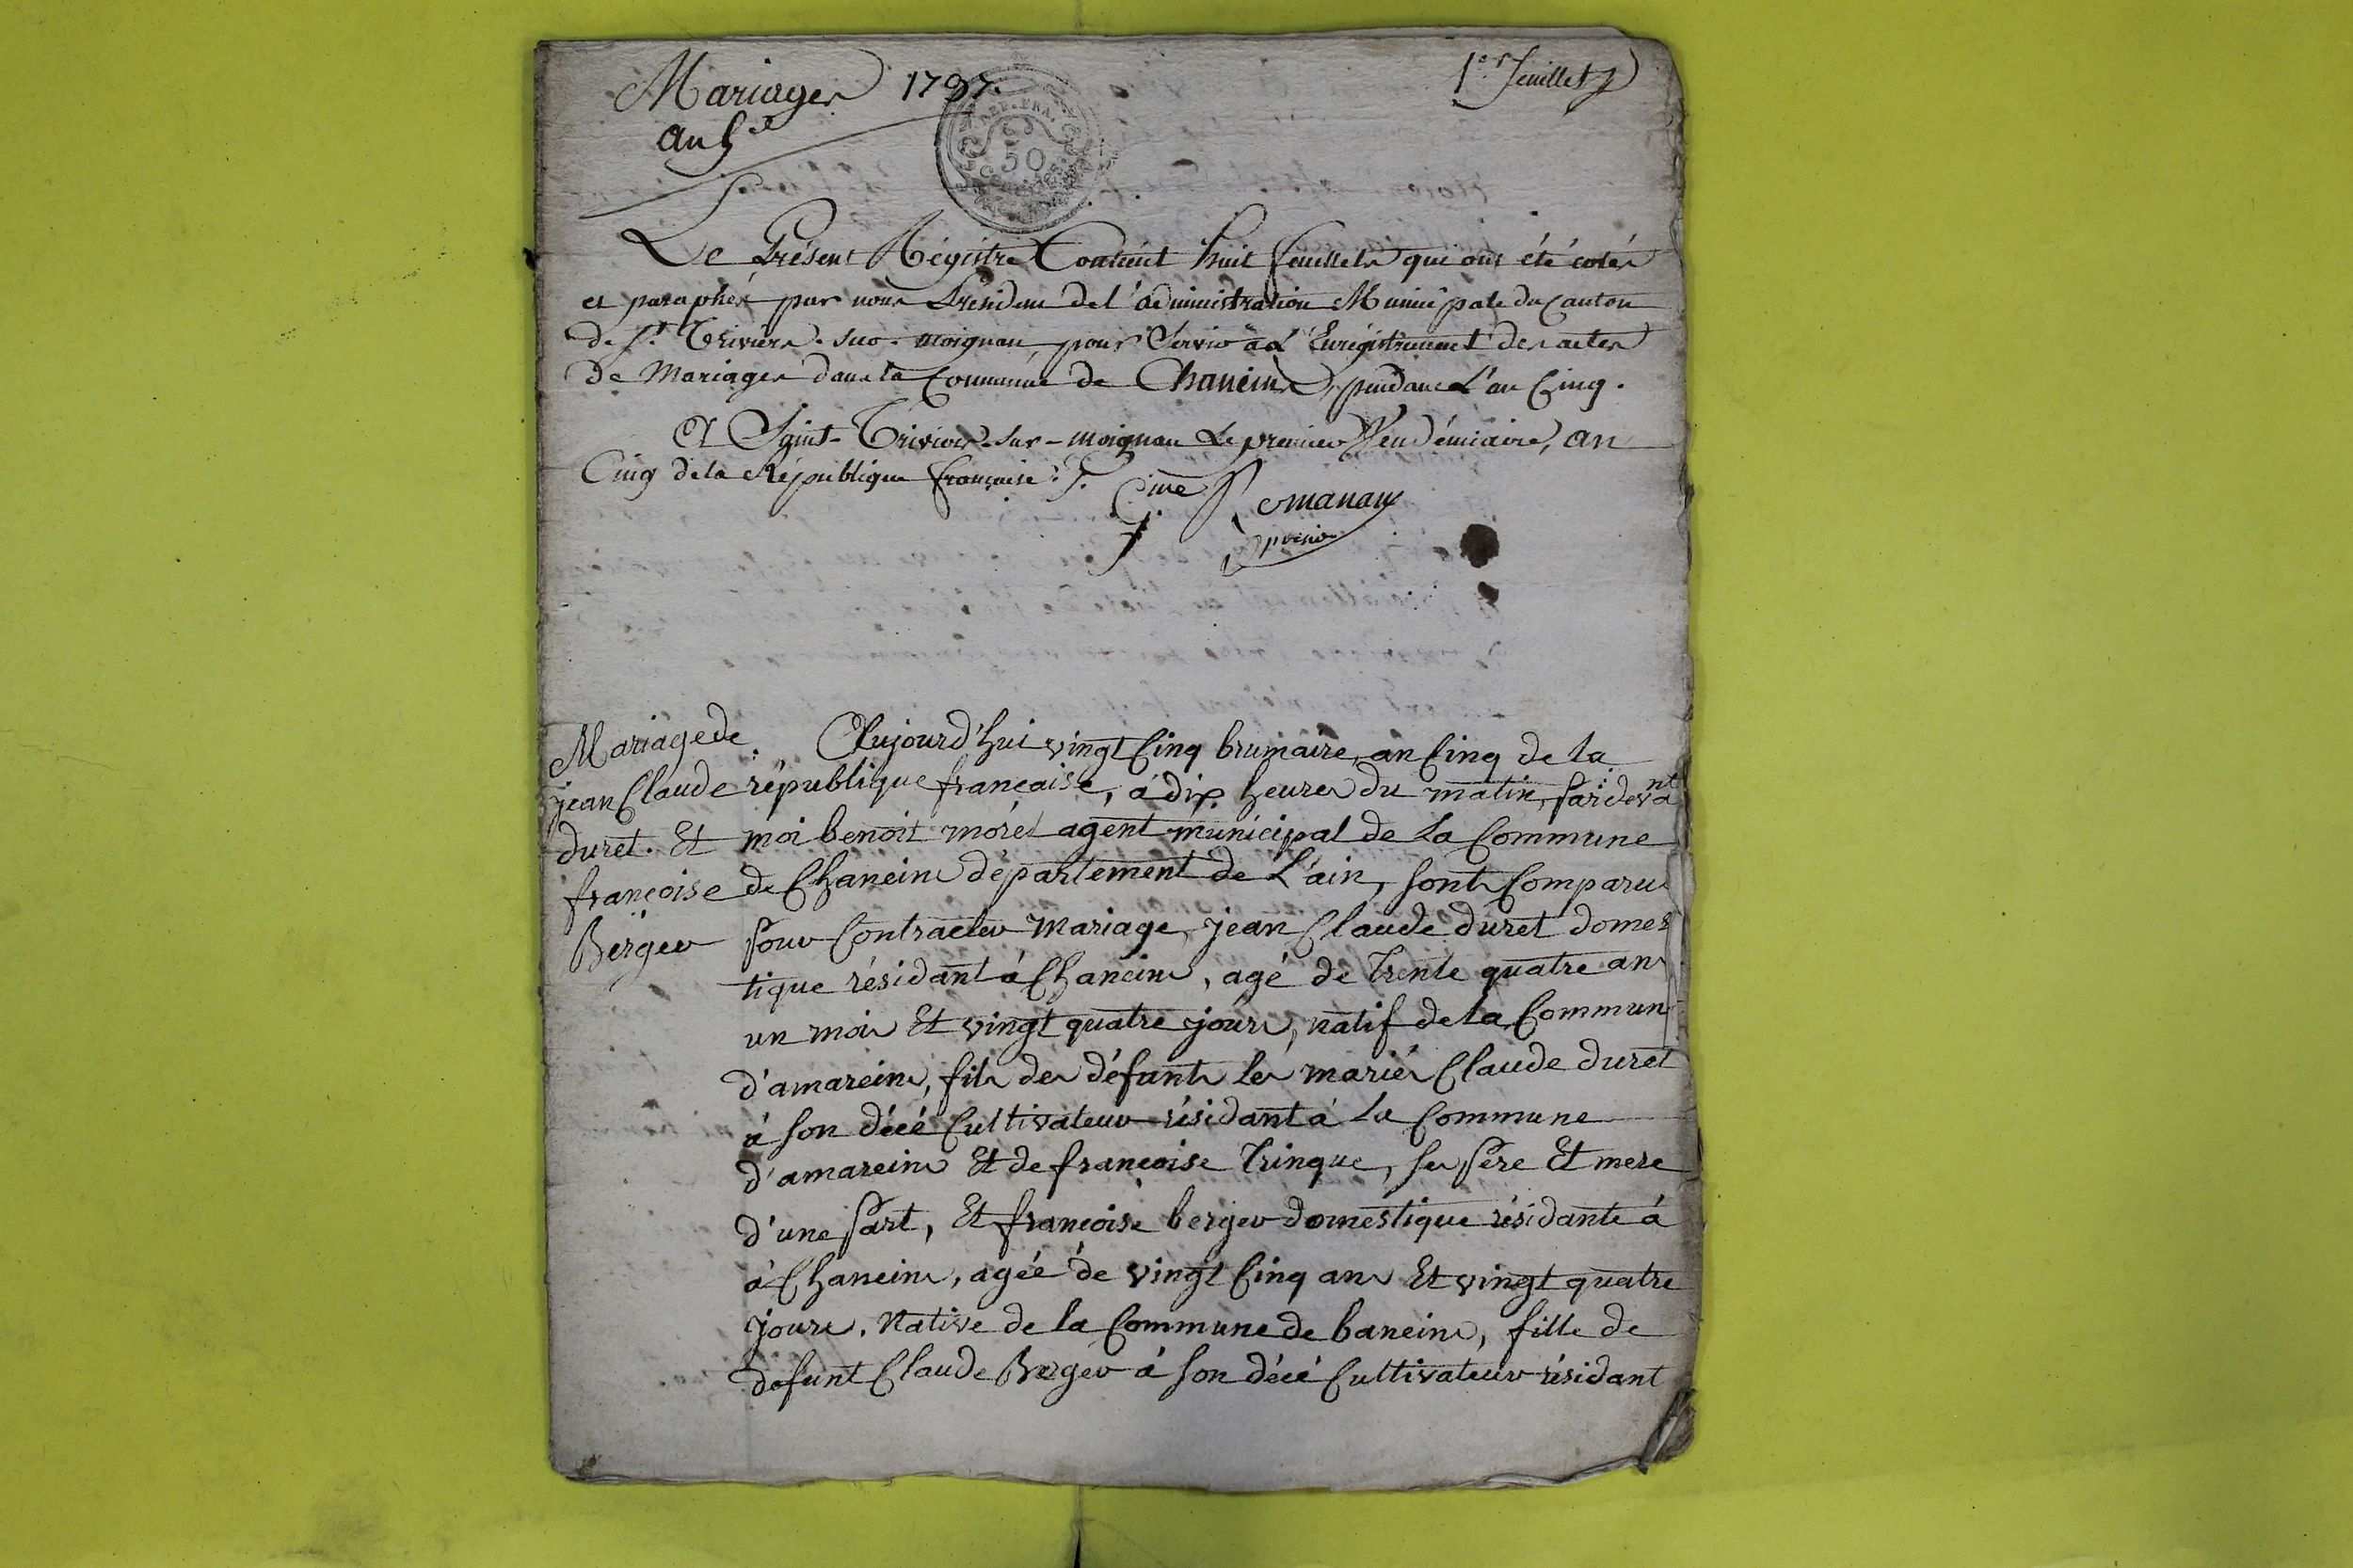 Mariages 1797.
1er feuillet
an 5.e
REP. FRA.
50
Le Présent Régistre Contient huit feuillets qui ont été cotés
et paraphés par nous Président de l'administration Municipale du Canton
de St. Triviers-sur-moignan, pour Servir à L'Enrégistrement des actes
de Mariages dans la Commune de Chaneins, pendant L'an Cinq.
A Saint-Trivier-sur-moignan Le premier Vendémiaire, an
Cinq de la République française.
presid.
Mariage de
jean Claude
duret. Et
françoise
Berger
Aujourd'hui vingt Cinq brumaire, an Cinq de la
république française, à dix heures du matin, pardevant
moi benoit morel agent municipal de la Commune
de Chaneins département de L'ain, sont Comparus
pour Contracter mariage, jean Claude duret domes
tique résidant à Chaneins, agé de trente quatre ans
un mois Et vingt quatre jours, natif de la Commun
d'amareins, fils des défunts les mariés Claude duret
à son décé Cultivateur résidant à la Commune
d'amareins Et de françoise Trinque, ses père Et mere
d'une part, Et françoise berger domestique résidante à
à Chaneins, agée de vingt Cinq ans Et vingt quatre
jours, native de la Commune de baneins, fille de
defunt Claude Berger à son décé Cultivateur résidant